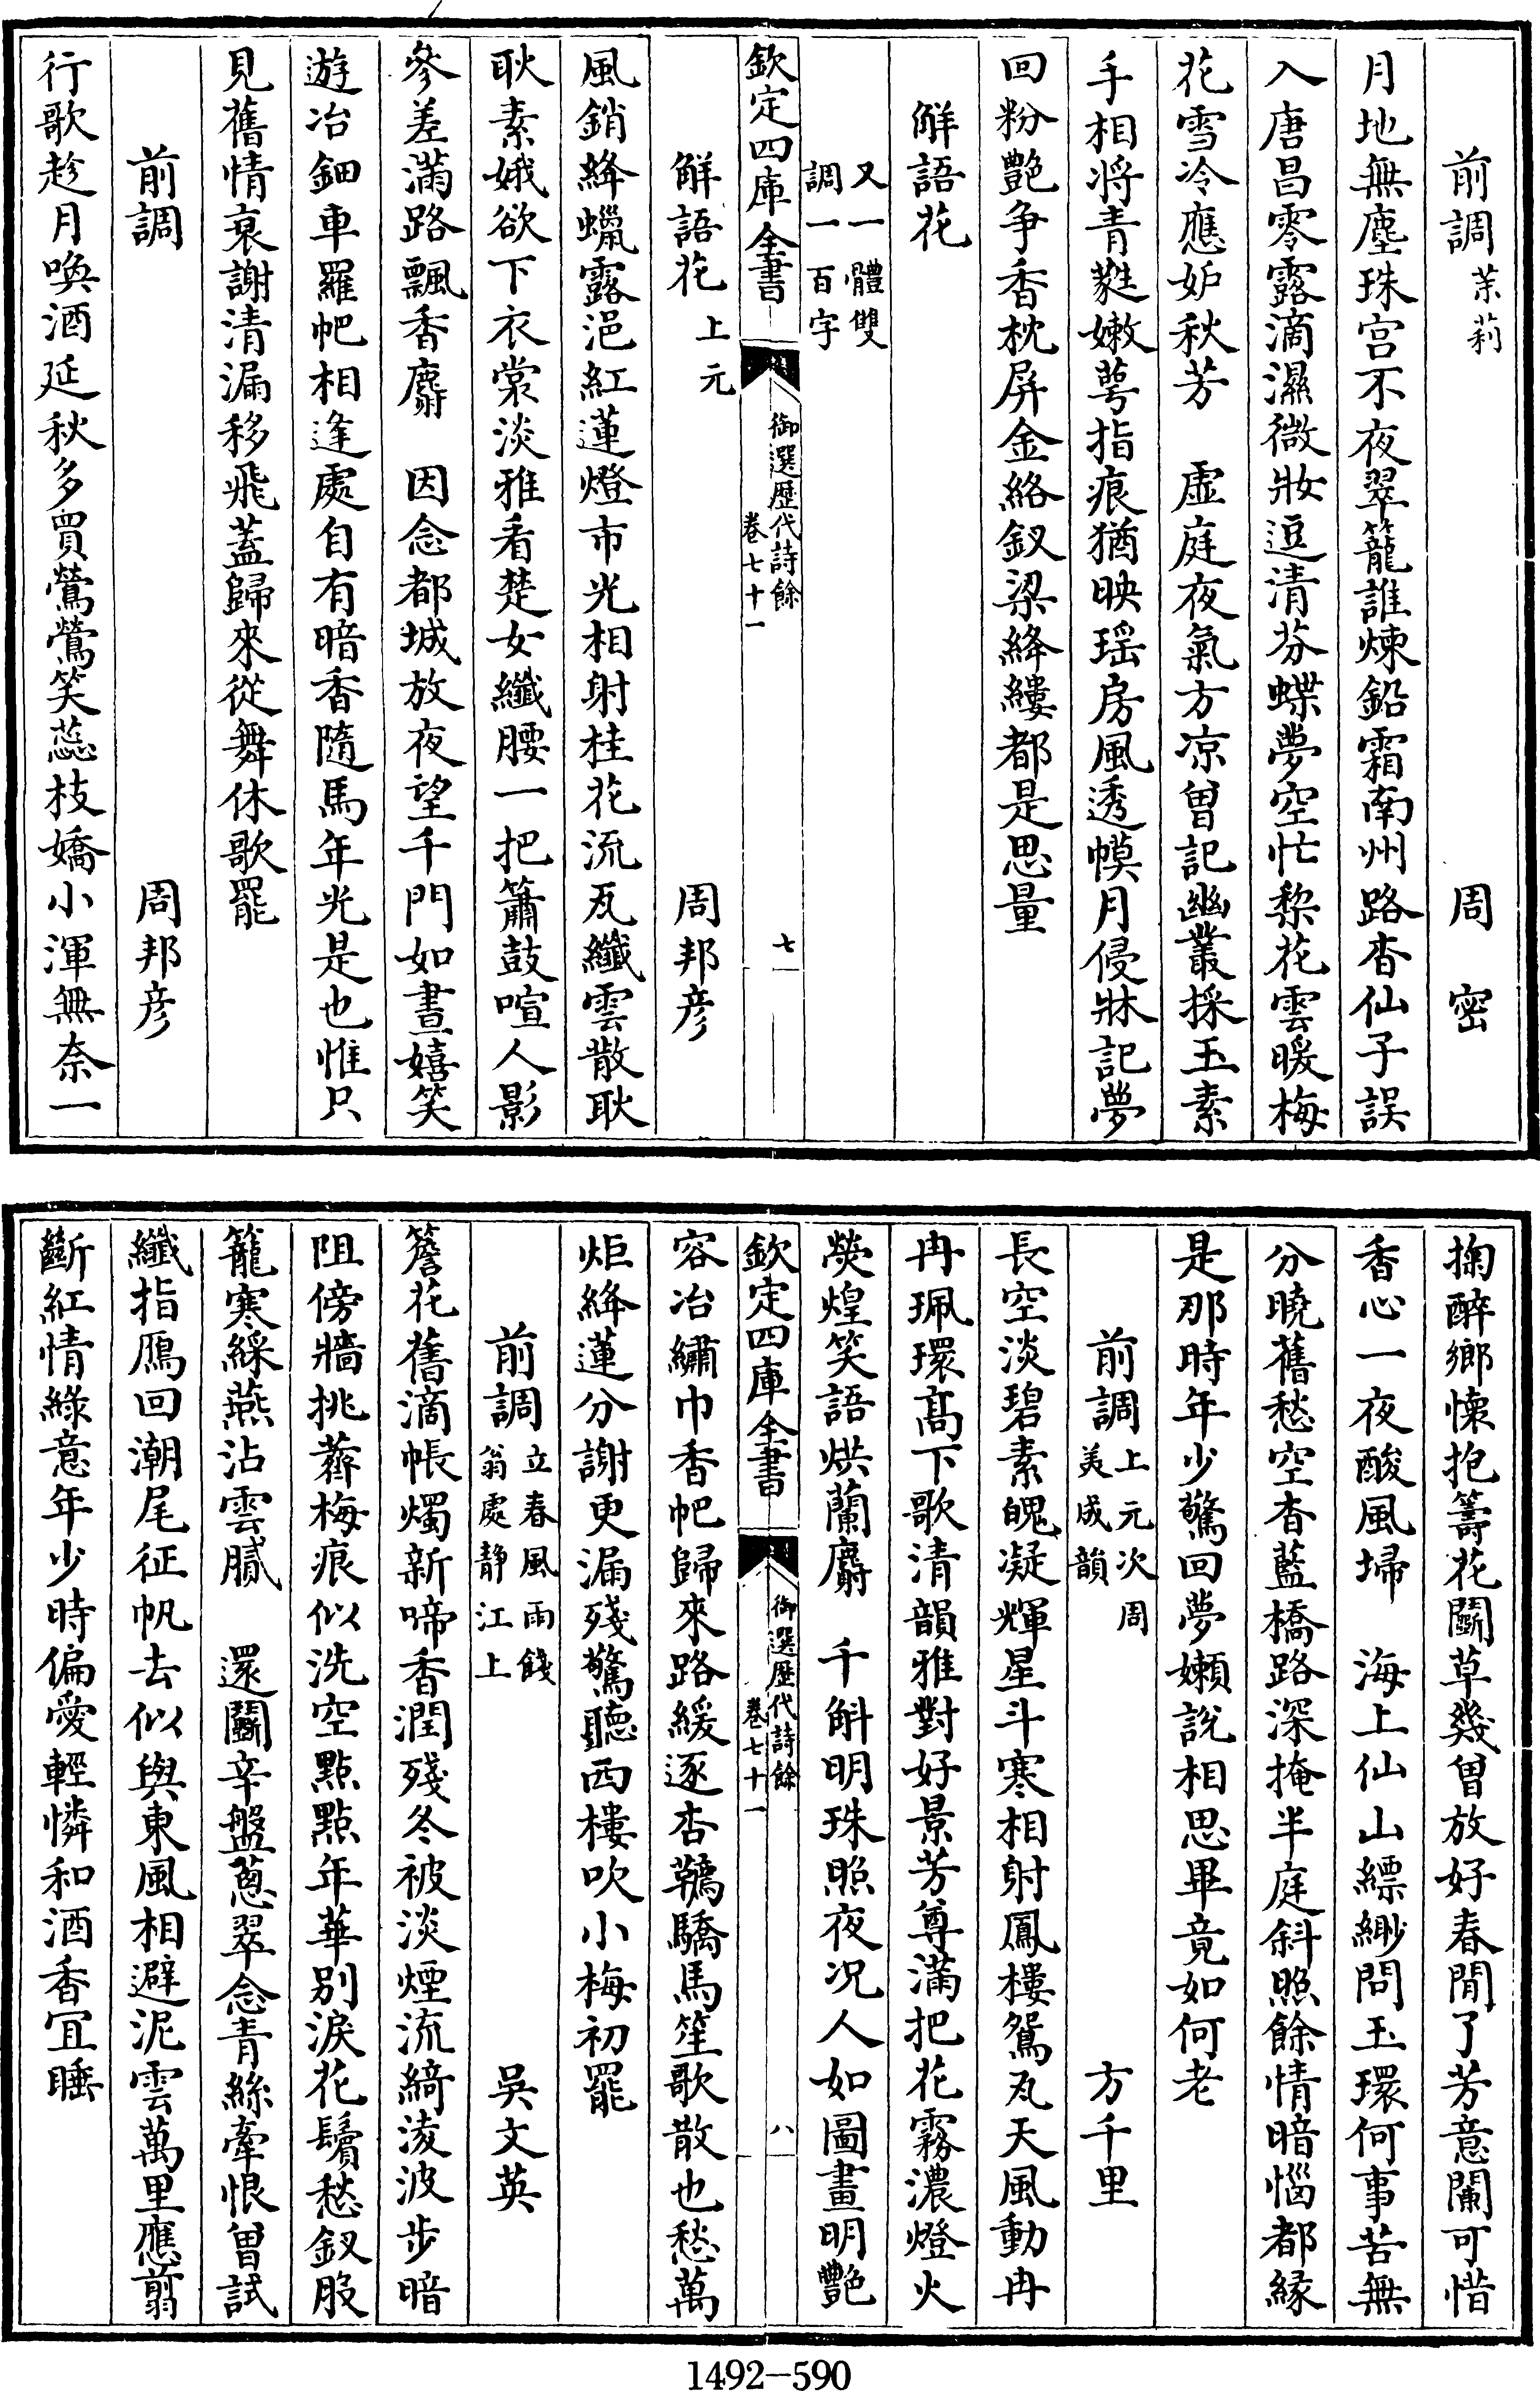 前調茉莉　周密
月地無塵珠宫不夜翠籠誰煉鉛霜南州路杳仙子誤
入唐昌零露滴濕微妝逗清芬蝶夢空忙梨花雲暖梅
花雪冷應妒秋芳　虚庭夜氣方凉曾記幽叢採玉素
手相將青蕤嫩萼指痕猶映瑶房風透幙月侵牀記夢
回粉艷争香枕屏金絡釵梁絳縷都是思量
解語花
又一體雙
調一百字
欽定四庫全書
御選歴代詩餘
卷七十一
七
解語花上元　周邦彦
風銷絳蠟露浥紅蓮燈市光相射桂花流瓦纖雲散耿
耿素娥欲下衣裳淡雅看楚女纖腰一把簫鼓喧人影
參差滿路飄香麝　因念都城放夜望千門如晝嬉笑
遊冶鈿車羅帊相逢處自有暗香隨馬年光是也惟只
見舊情衰謝清漏移飛蓋歸來從舞休歌罷
前調　周邦彦
行歌趁月喚酒延秋多買鶯鶯笑蕊枝嬌小渾無奈一
掬醉鄉懷抱籌花鬭草幾曾放好春閒了芳意闌可惜
香心一夜酸風埽　海上仙山縹緲問玉環何事苦無
分曉舊愁空杳藍橋路深掩半庭斜照餘情暗惱都緣
是那時年少驚回夢嬾說相思畢竟如何老
前調上元次周美成韻　方千里
長空淡碧素魄凝輝星斗寒相射鳳樓鴛瓦天風動冉
冉珮環高下歌清韻雅對好景芳尊滿把花霧濃燈火
熒煌笑語烘蘭麝　千斛明珠照夜況人如圖畫明艷
欽定四庫全書
御選歴代詩餘
卷七十一
八
容冶繡巾香帊歸來路緩逐杏韉驕馬笙歌散也愁萬
炬絳蓮分謝更漏殘驚聽西樓吹小梅初罷
前調立春風雨餞翁處静江上　吳文英
簷花舊滴帳燭新啼香潤殘冬被淡煙流綺凌波步暗
阻傍牆挑薺梅痕似洗空點點年華别淚花鬢愁釵股
籠寒綵燕沾雲膩　還鬭辛盤蔥翠念青絲牽恨曾試
纖指鴈回潮尾征帆去似與東風相避泥雲萬里應翦
斷紅情綠意年少時偏愛輕憐和酒香宜睡
1492－590